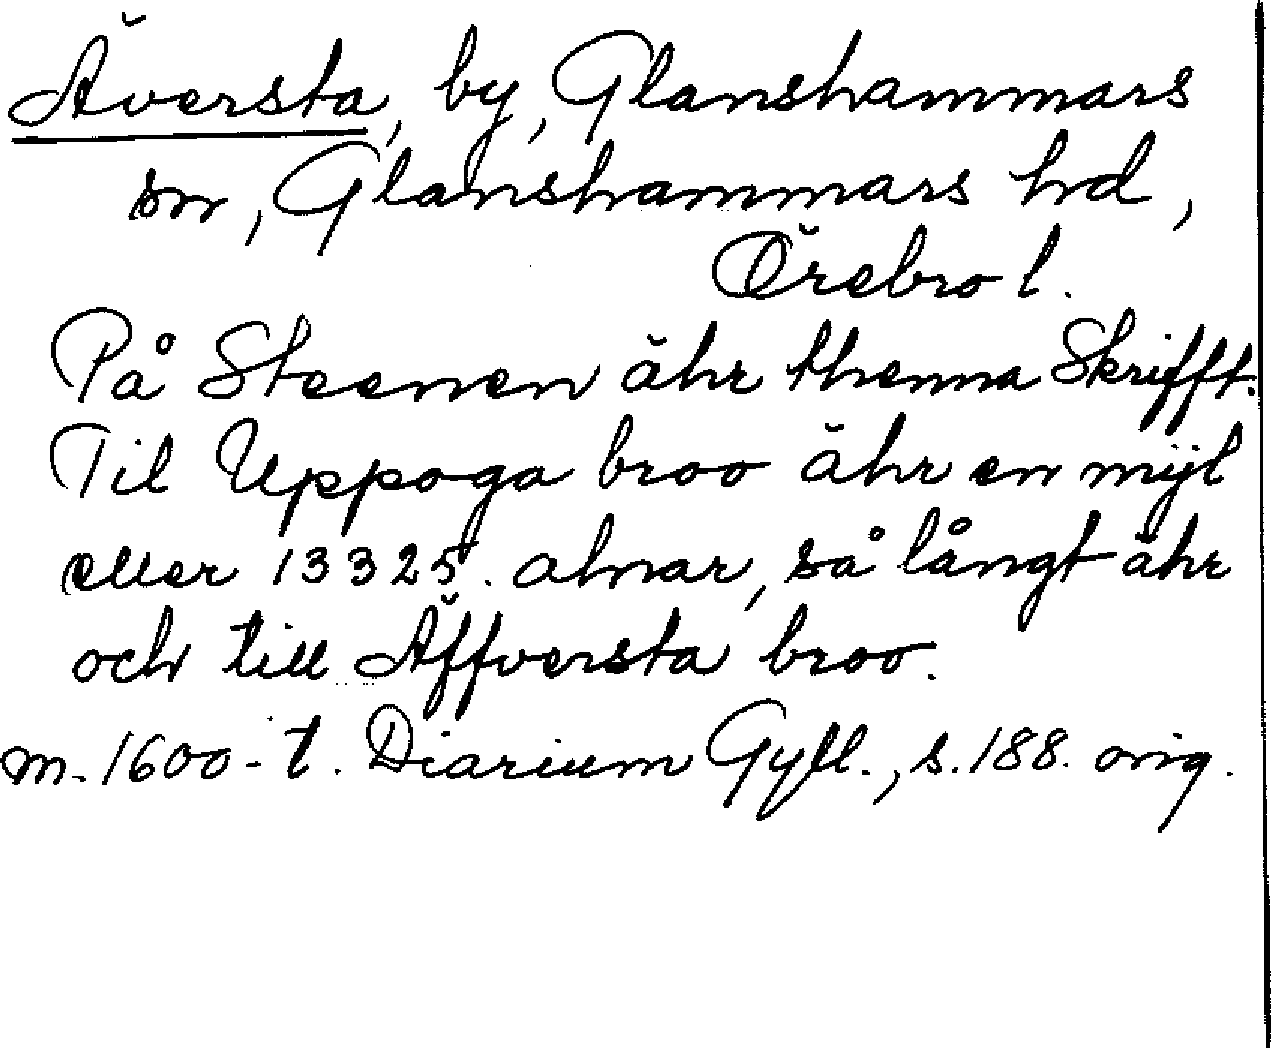 Äversta, by, Glanshammars
sn, Glanshammars hd,
Örebro l.
På Steenen ähr thenna Skrifft.
Til Uppoga broo ähr en mijl
eller 13325. alnar, så långt ähr
och till Äffversta broo.
m. 1600-t. Diarium Gyll., s. 188. orig.